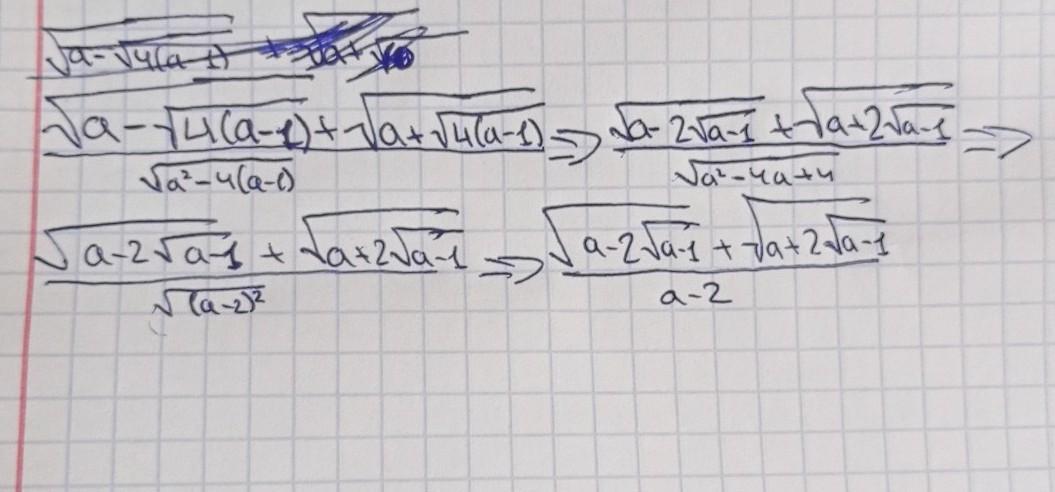 √(a-√(4(a-1))) + √(a+√
(√(a-√(4(a-1))) + √(a+√(4(a-1))))/√(a²-4(a-1)) => (√(a-2√(a-1)) + √(a+2√(a-1)))/√(a²-4a+4) =>
(√(a-2√(a-1)) + √(a+2√(a-1)))/√((a-2)²) => (√(a-2√(a-1)) + √(a+2√(a-1)))/(a-2)